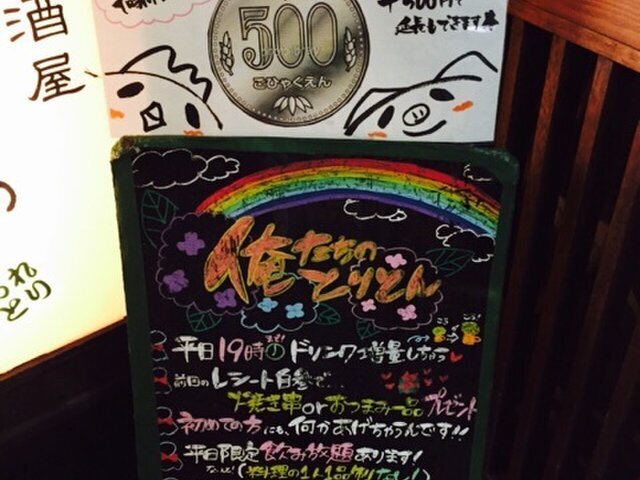 酒
屋
500
ごひゃくえん
延長できます
俺たちの
とりとん
平日19時まで ドリンク増量しちゃう
前回のレシート持参で…
焼き串orおつまみ一品プレゼント
初めての方にも、何かあげちゃうんです!!
平日限定飲み放題あります!
(料理の1人1品制なし!)